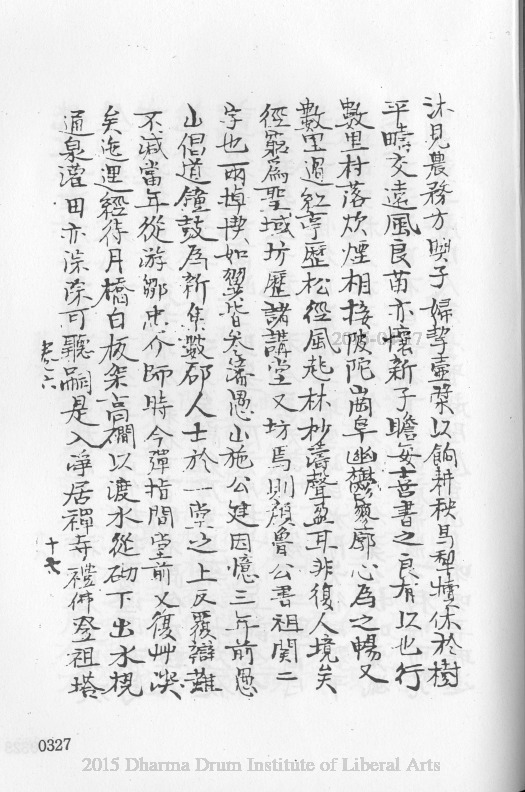 沐見農務方興子婦挈壺槳以餉耕秋馬犁憤休於樹
平疇交遠風良苗亦懷新子瞻每喜書之良有以也行
數里村落炊煙相接陂陀崗阜幽鬱寥廓心為之暢又
數里過紅亭歷松徑風起林杪濤聲盈耳非復人境矣
徑窮為聖域坊歷諸講堂又坊焉則顏魯公書祖関二
字也兩掉楔如翼皆參藩愚山施公建因憶三年前愚
山倡道鐘鼓為新集數郡人士於一堂之上反覆辯難
不減當年從游鄒忠介師時今彈指間堂前又復艸深
矣迤逕經待月橋白板架高磵以渡水從砌下出水梘
通泉灌田亦深深可聽嗣是入淨居禪寺禮佛登祖塔
卷之六
十六
0327
2015 Dharma Drum Institute of Liberal Arts